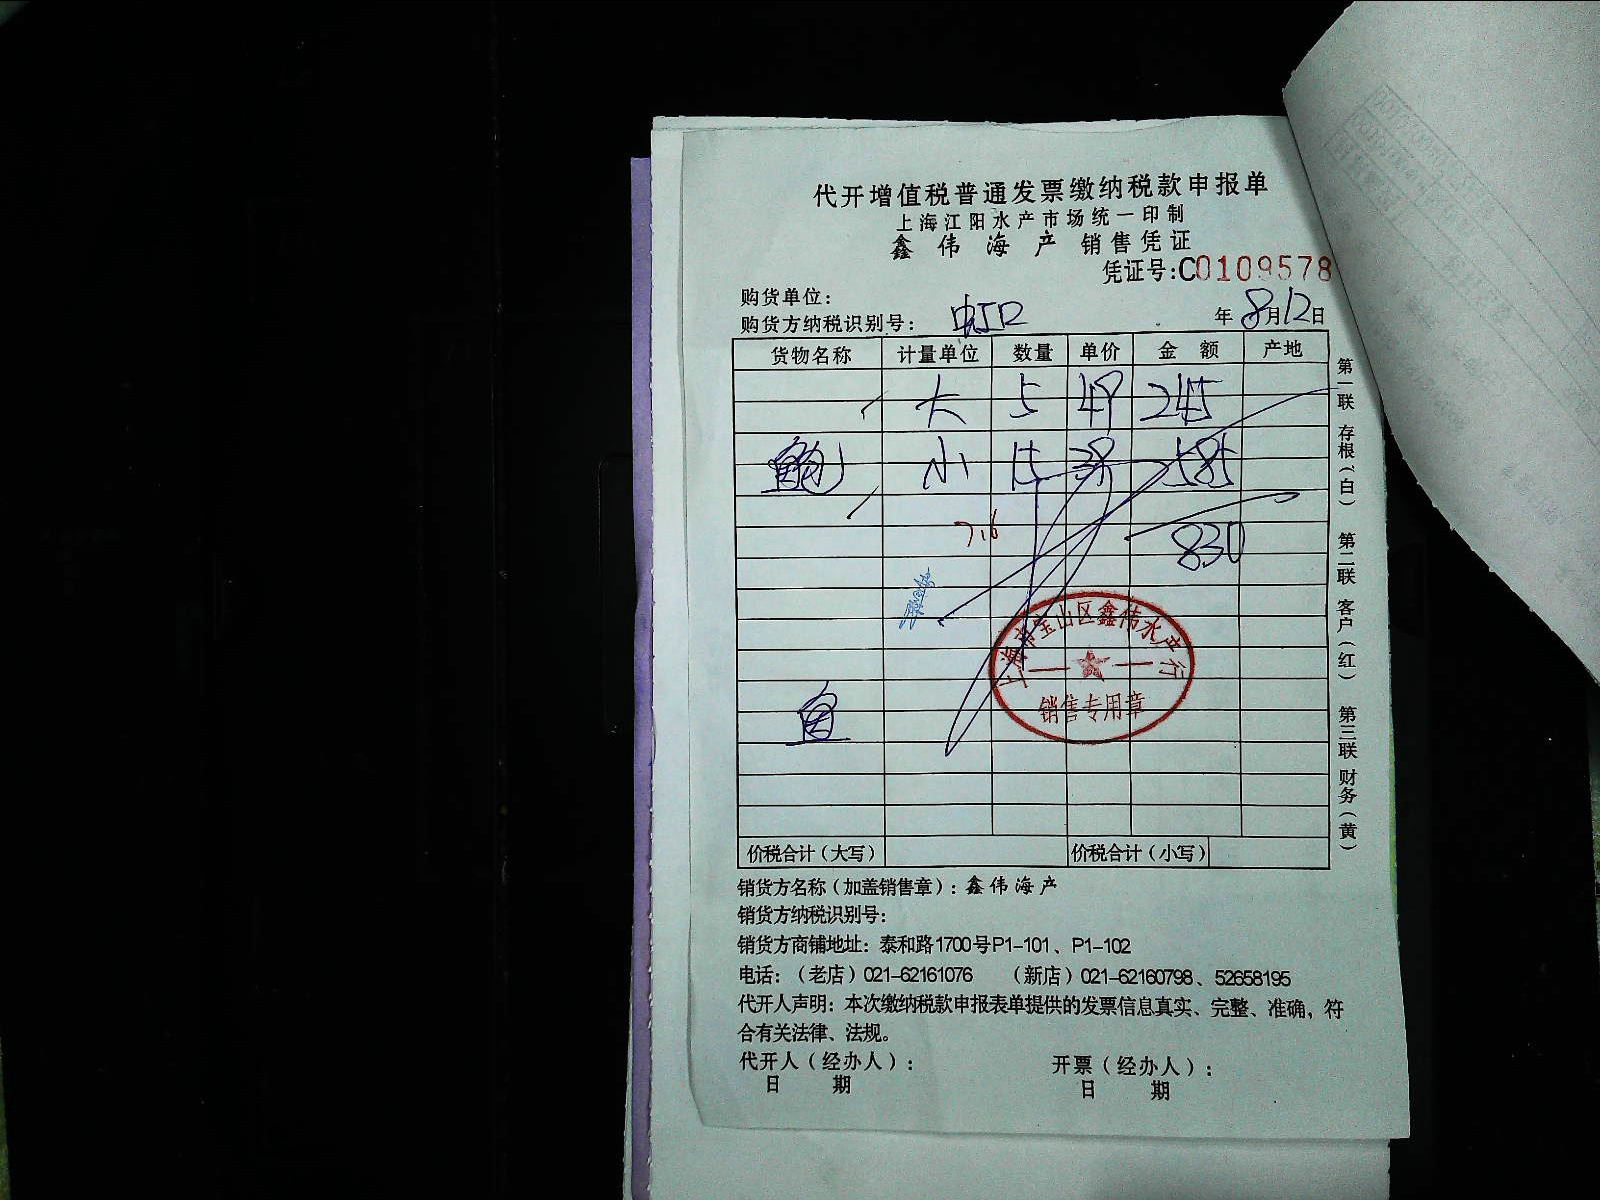 代开增值税普通发票缴纳税款申报单
上海江阳水产市场统一印制
鑫伟海产 销售凭证
凭证号:C0109578
购货单位:
购货方纳税识别号: 虹口 年8月12日
货物名称 计量单位 数量 单价 金额 产地
大 5 49 245
鲍 小 15 39 585
7.6 830
上海市宝山区鑫伟水产行
销售专用章
价税合计（大写） 价税合计（小写）
第一联 存根（白） 第二联 客户（红） 第三联 财务（黄）
销货方名称（加盖销售章）: 鑫伟海产
销货方纳税识别号:
销货方商铺地址: 泰和路1700号P1-101、P1-102
电话:（老店）021-62161076 （新店）021-62160798、52658195
代开人声明: 本次缴纳税款申报表单提供的发票信息真实、完整、准确，符
合有关法律、法规。
代开人（经办人）: 开票（经办人）:
日 期 日 期